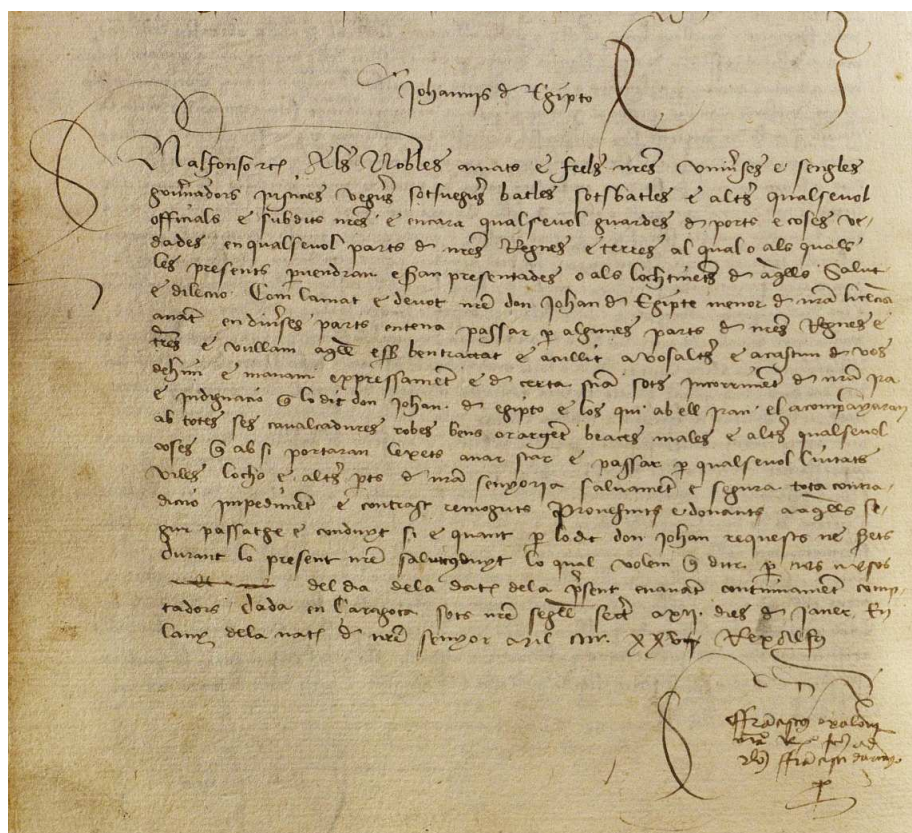 Johannis d Egipto
N alfonso etc. Als Nobles amats e feels nres univses e sengles
govnadors justicies vegs sotsvegs batles sotsbatles e alts qualsevol
officials e subdits nres e encara qualsevol guardes d ports e coses ve-
dades en qualsevol parts d nres Regnes e terres al qual o als quals
les presents pvendran e seran presentades o als lochtinets d aqlls Salut
e dileccio Com lamat e devot nre don Johan d Egipte menor d nra licencia
anat en divses parts entena passar p algunes parts d nres Regnes e
tres e vullam aqll esser ben tractat e acullit a vosalts e a cascun d vos
dehim e manam expressamet e d certa sciencia sots incorrimet d nra ira
e indignacio q lo dit don Johan d egipto e los qui ab ell iran e l acompanyaran
ab totes ses cavalcadures robes bens or arget beaces males e alts qualsevol
coses q ab si portaran lexets anar star e passar p qualsevol Ciutats
viles lochs e alts pts d nra senyoria salvamet e segura tota contra-
diccio impedimet e contrast remoguts Provehints e donants a aqlls se-
gur passatge e conduyt si e quant p lo dit don Johan requests ne serets
durant lo present nre salvconduyt lo qual volem q dur p tres mesos
del dia dela dat dela psent enavat continuamet comp-
tadors Dada en Caragoca sots nre segell secret a xii dies d Janer En
lany dela nat d nre senyor Mil cccc xxv Rex Alfs
ffranciscus
ffrancisci